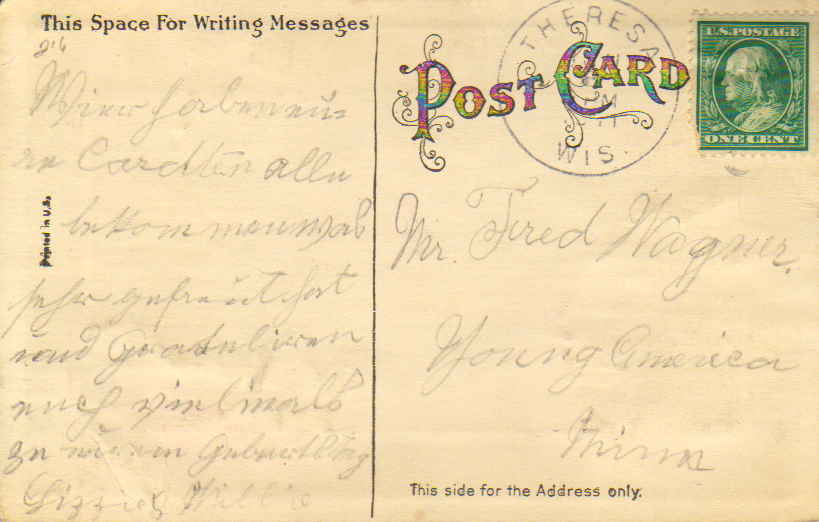 This Space For Writing Messages
Wier haben eü=
re Cardten alle
bekommen was
sehr gefreüt hat
und Gratuliren
euch vielmals
zu Geburtstag
Lizzie & Willie
Printed in U.S.
POST CARD
THERESA
PM
WIS.
U.S. POSTAGE
ONE CENT
Mr. Fred Wagner.
Young America
Minn
This side for the Address only.